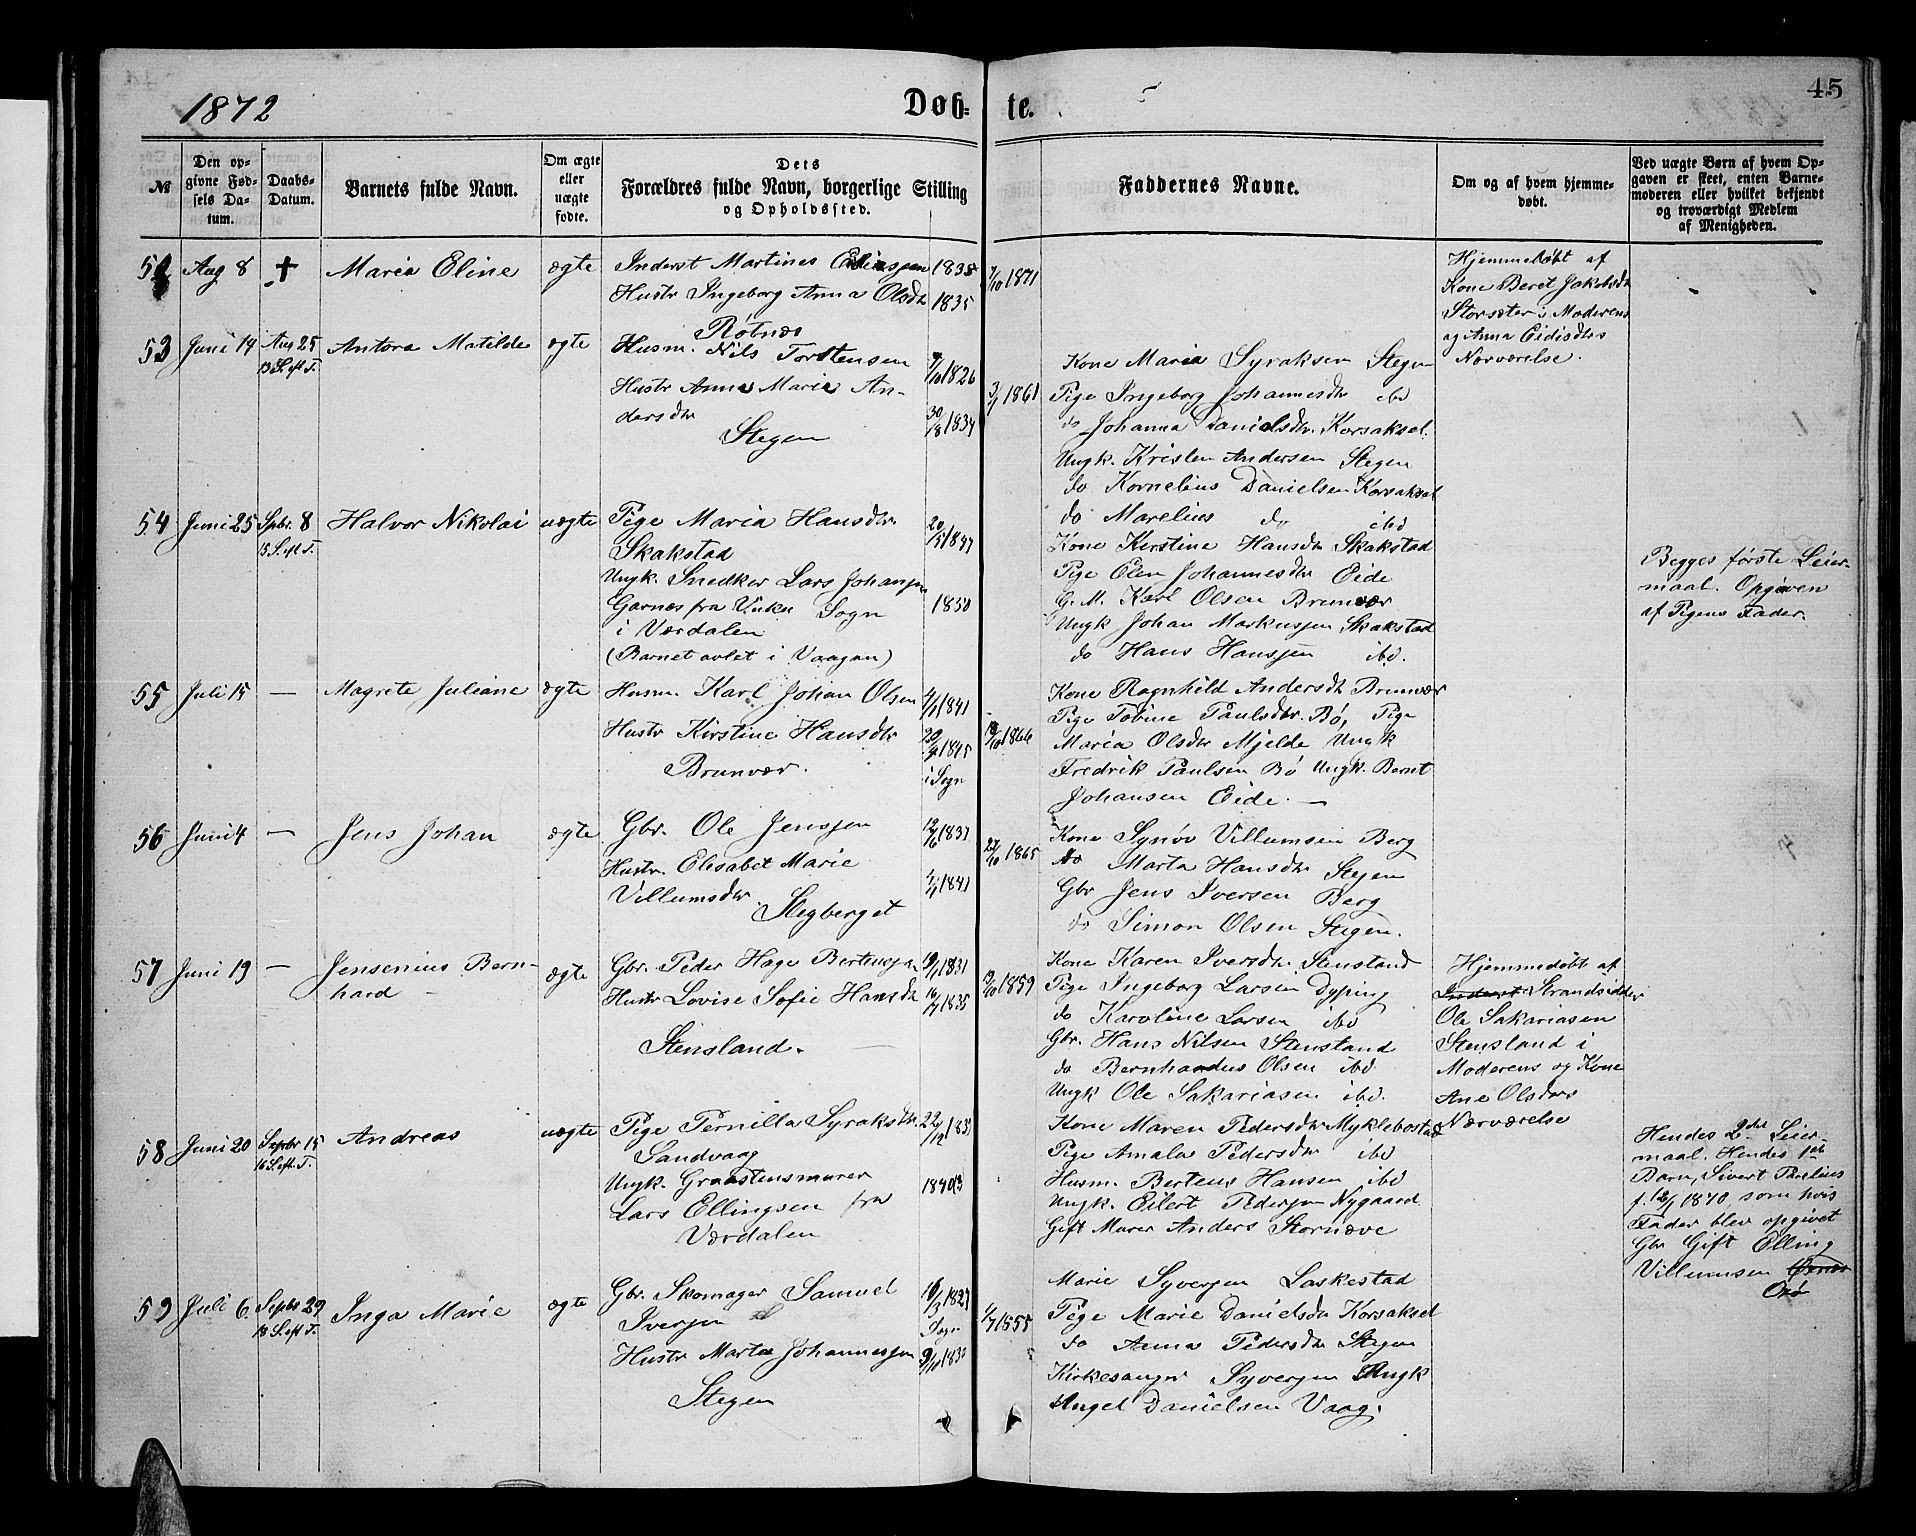 1872
Døb-
te.
45
№
Den op-
givne Fød-
sels Da-
tum.
Daabs-
Datum.
Barnets fulde Navn.
Om ægte
eller
uægte
fødte.
Dets
Forældres fulde Navn, borgerlige Stilling
og Opholdssted.
Faddernes Navne.
Om og af hvem hjemme-
døbt.
Ved uægte Børn af hvem Op-
gaven er skeet, enten Barne-
moderen eller hvilket bekjendt
og troværdigt Medlem
af Menigheden.
Aug 8
+
Maria Eline
ægte
Inderst Martines
1835
Hustr Ingeborg Anna Olsdtr
1835
Røtnæs
7/10 1871
Hjemmedøbt af
Kone Beret Jakobsdtr
Storsæter i Moderens
og Anna Eidisdtrs
Nærværelse.
53
Juni 14
Aug 25
13 S. eft T.
Antora Matilde
ægte
Husm. Nils Torstensen
9/10 1826
Hustr Anna Maria An-
dersdtr
1834
Stegen
3/7 1861
Kone Maria Syraksen Stegen
Pige Ingeborg Johannesdtr ibd
do Johanna Danielsdtr Korsaksel
Ungk. Kristen Andersen Stegen
do Kornelius Danielsen Korsaksel
do Marelius do ibd
54
Juni 25
Spbr. 8
15 S. eft T.
Halvor Nikolai
uægte
Pige Maria Hansdtr
20/5 1847
Skakstad
Ungk. Snedker Lars Johansen
Garnes fra Vuku Sogn
1850
i Værdalen
(Barnet avlet i Vaagan)
Kone Kirstine Hansdtr Skakstad
Pige Elen Johannesdtr Eide
G. M. Karl Olsen Brunvær
Ungk Johan Markussen Skakstad
do Hans Hanssen ibd.
Begges første Leier-
maal. Opgiven
af Pigens Fader.
55
Juli 15
—
Magrete Juliane
ægte
Husm. Karl Johan Olsen
4/1 1841
Hustr Kirstine Hansdtr
1845
i Sogn
Brunvær.
1866
Kone Ragnhild Andersdtr Brunvær
Pige Tobine Paulsdtr. Bø, Pige
Maria Olsdtr Mjelde Ungk
Fredrik Paulsen Bø Ungk. Bernt
Johansen Eide. —
56
Juni 4
—
Jens Johan
ægte
Gbr. Ole Jenssen
12/6 1837
Hustr. Elisabet Marie
Villumsdtr.
1841
Stegberget
22/10 1865
Kone Synøv Villumsen Berg
do Marta Hansdtr Stegen
Gbr Jens Iversen Berg
do Simon Olsen Stegen.
57
Juni 19
—
Jensenius Bern-
hard
ægte
Gbr. Peder Hage Bertenssen
19/1 1831
Hustr Lovise Sofie Hansdtr
16/7 1835
Stensland.
1859
Kone Karen Iversdtr Stensland
Pige Ingeborg Larsen Dyping
do Karoline Larsen ibd
Gbr. Hans Nilsen Stensland
do Bernhardus Olsen ibd
Ungk Ole Sakariasen ibd.
Hjemmedøbt af
Inderst Strandsidder
Ole Sakariasen
Stensland i
Moderens og Kone
Ane Olsdtrs
Nærværelse
58
Juni 20
Septbr 15
16 S. eft. T.
Andreas
uægte
Pige Pernilla Syraksdtr.
22/12 183
Sandvaag
Ungk. Graastensmurer
Lars Ellingsen fra
Værdalen
Kone Maren Pedersdtr Myklebostad
Pige Amalia Pedersdtr ibd
Husm. Berteus Hansen ibd
Ungk. Eilert Pedersen Nygaard
Gift Murer Anders Stornæve
Hendes 2det Leier-
maal. Hendes 1ste
Barn, Sivert Paulius
f. 1870 som hvis
Fader blev opgivet
Gbr Gift Elling
Villumsen
59
Juli 6.
Septbr 29
18 S. eft T.
Inga Marie
ægte
Gbr. Skomager Samuel
Iversen
16/3 1827
Sogn
Hustr Marta Johannessen
9/10 1830
Stegen
1/7 1855
Marie Syversen Laskestad
Pige Marie Danielsdtr Korsaksel
do Anna Pedersdtr Stegen
Kirkesanger Syversen Ungk
Angel Danielsen Vaag.